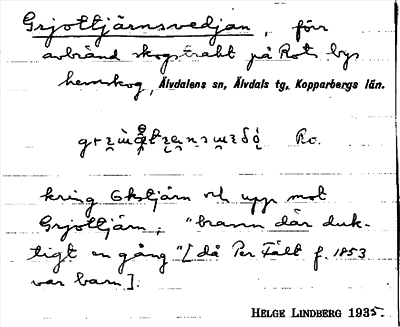 Grjottjärnsvedjan, förr
avbränd skogstrakt på Rots bys
hemskog, Älvdalens sn, Älvdals tg. Kopparbergs län.
Ro.
kring Okstjärn och upp mot
Grjottjärn; "brann där duk-
tigt en gång" [då Per Fält f. 1853
var barn].
HELGE LINDBERG 1935.